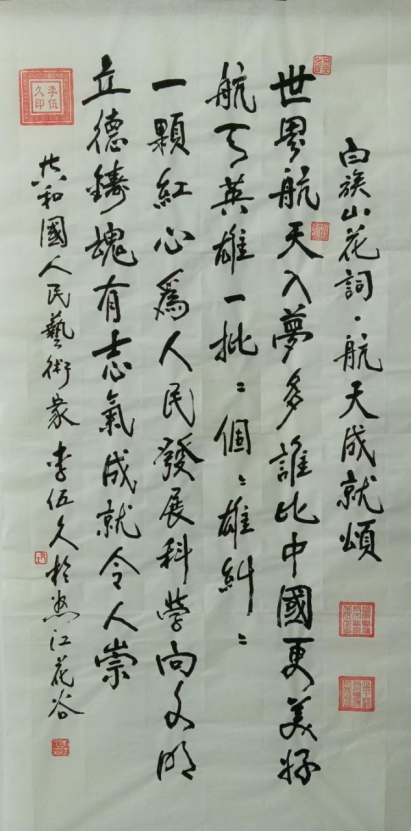 白族山花詞·航天成就頌
世界航天入夢多誰比中國更美好
航天英雄一批﹕個﹕雄糾﹕
一顆紅心爲人民發展科學向文明
立德鑄魂有志氣成就令人崇
共和國人民藝術家李伍久於怒江花谷
李伍久印